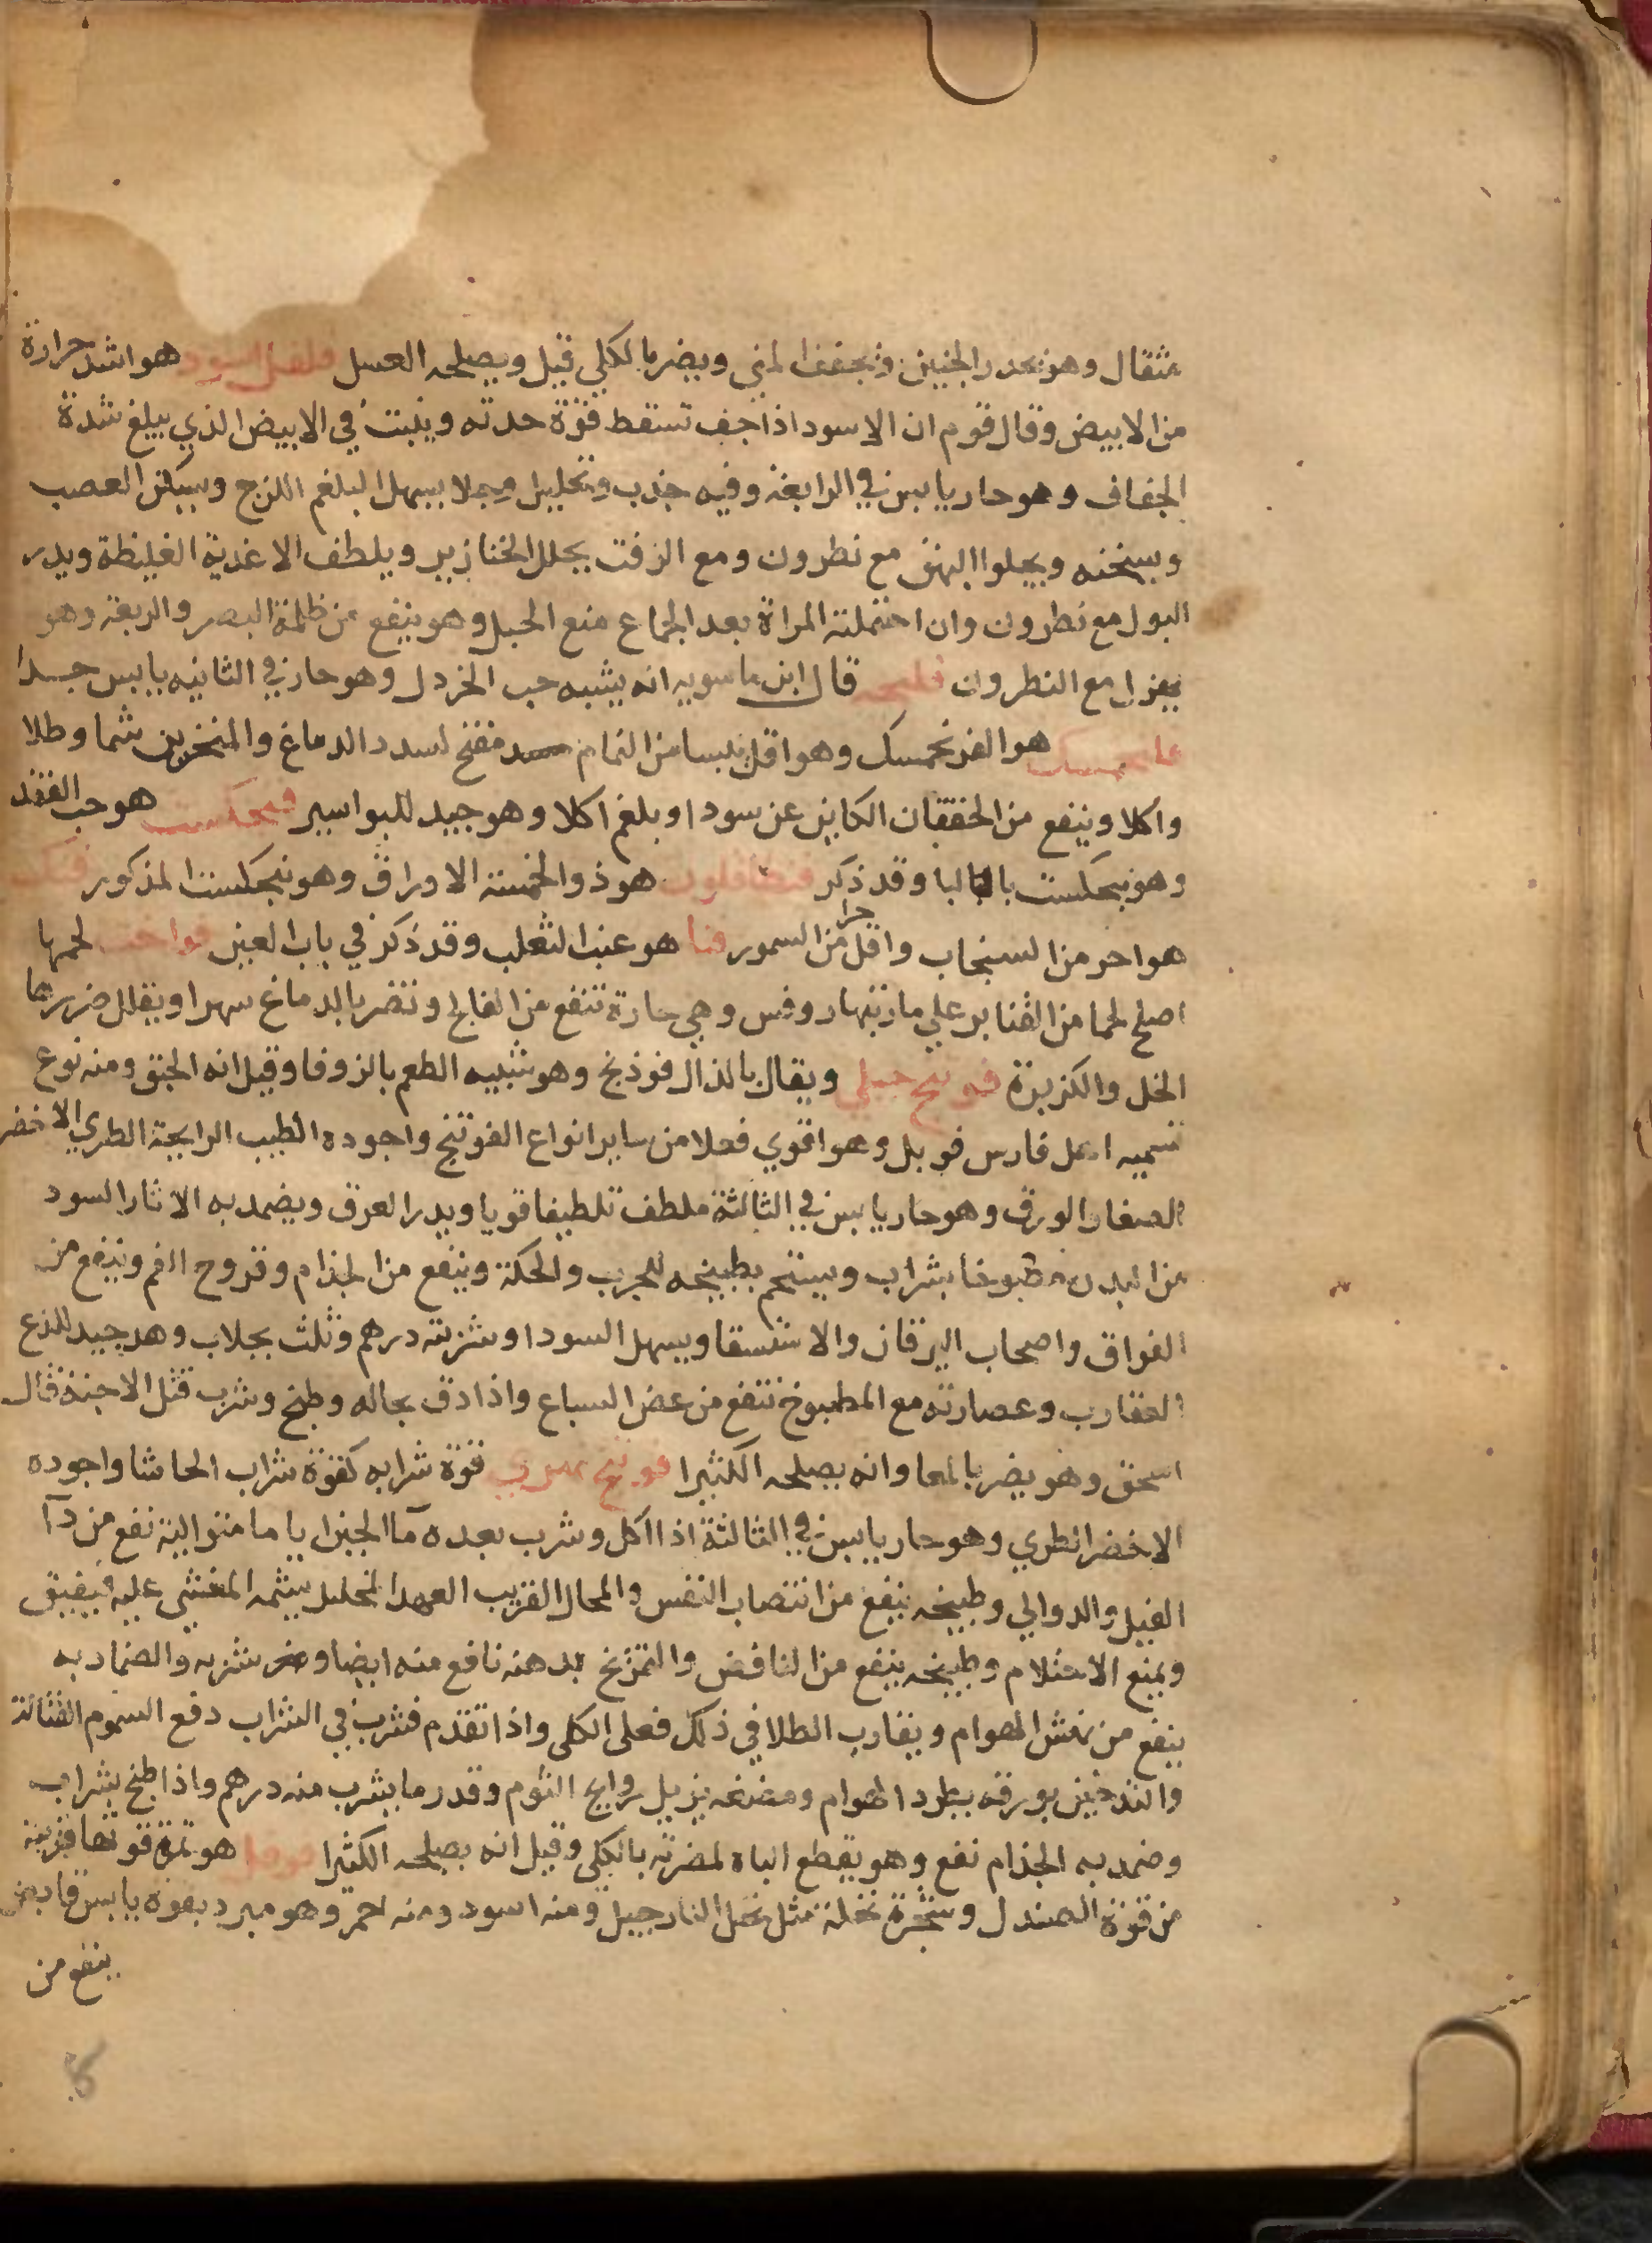 مثقال وهو يحدر الجنين ويجفف المني ويضر بالكلي قيل ويصلحه العسل فلفل اسود هو اشد حرارة
من الابيض وقال قوم ان الاسود اذا جف تسقط قوة حدته ويثبت في الابيض الذي يبلغ شدة
الجفاف وهو حار يابس في الرابعة وفيه جذب وتحليل وجلا يسهل البلغم اللزج ويسكن العصب
ويسخنه ويجلوا البهق مع نطرون ومع الزفت يحلل الخنازير ويلطف الاغذية الغليظة ويدر
البول مع نطرون وان احتملته المراة بعد الجماع منع الحبل وهو ينفع من ظلمة البصر والربعة وهو
يهزل مع النطرون فلنجه قال ابن ماسويه انه يشبه حب الخردل وهو حار في الثانيه يابس جدا
هو الفرنجمسك وهو اقل يبسا من النمام مفتح لسدد الدماغ والمنخرين شما وطلا
واكلا وينفع من الخفقان الكاين عن سودا وبلغم اكلا وهو جيد للبواسير فنجنكشت هو حب الفقد
وهو بنجكست بالبا وقد ذكر فنطافلون هو ذو الخمسة الاوراق وهو بنجكست المذكور فنك
هو احر من السنجاب واقل حرا من السمور فنا هو عنب الثعلب وقد ذكر في باب العين فواخت لحمها
اصلح لحما من القنابر علي ما رتبها روفس وهي حارة تنفع من الفالج وتضر بالدماغ سهرا ويقلل ضررها
الخل والكزبرة فوتنج جبلي ويقال بالذال فوذنج وهو شبيه الطعم بالزوفا وقيل انه الحبق ومنه نوع
تسميه اهل فارس فوبل وهو اقوي فعلا من ساير انواع الفوتنج واجوده الطيب الرايحة الطري الاخضر
الصغار الورق وهو حار يابس في الثالثة ملطف تلطيفا قويا ويدر العرق ويضمد به الاثار السود
من البدن مطبوخا بشراب ويستحم بطبيخه للجرب والحكة وينفع من الجذام وقروح الفم وينفع من
الفواق واصحاب اليرقان والاستسقا ويسهل السودا وشربته درهم وثلث بجلاب وهو جيد للذع
العقارب وعصارته مع المطبوخ تنفع من عض السباع واذا دق بحاله وطبخ وشرب قتل الاجنة قال
اسحق وهو يضر بالمعا وانه يصلحه الكثيرا فوتنج نهري قوة شرابه كقوة شراب الحاشا واجوده
الاخضر الطري وهو حار يابس في الثالثة اذا اكل وشرب بعده مآ الجبن اياما متوالية نفع من دآ
الفيل والدوالي وطبيخه ينفع من انتصاب النفس والمحال القريب العهد المحليل يشمه المغشي عليه فيفيق
ويمنع الاحتلام وطبيخه ينفع من النافض والتمريخ بدهنه نافع منه ايضا وشربه والضماد به
ينفع من نهش الهوام ويقارب الطلا في ذلك فعلي الكي واذا تقدم فشرب في الشراب دفع السموم القتالة
والتدخين بورقه يطرد الهوام ومضغه يزيل روايح الثوم وقدر ما يشرب منه درهم واذا طبخ بشراب
وضمد به الجذام نفع وهو يقطع الباه لمضرته بالكلي وقيل انه يصلحه الكثيرا فوفل هو ثمرة قوتها قريبة
من قوة الصندل وشجرة نخلة مثل نخل النارجيل ومنه اسود ومنه احمر وهو مبرد بقوة يابس قابض
ينفع من